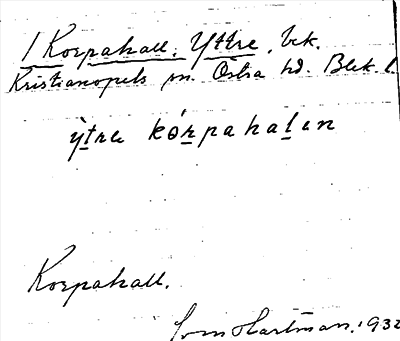 1 Korpahall. Yttre, bek.
Kristianopels sn. Östra hd. Blek. l.
ỳtre kórpahalen
Korpahall.
Hartman. 1932